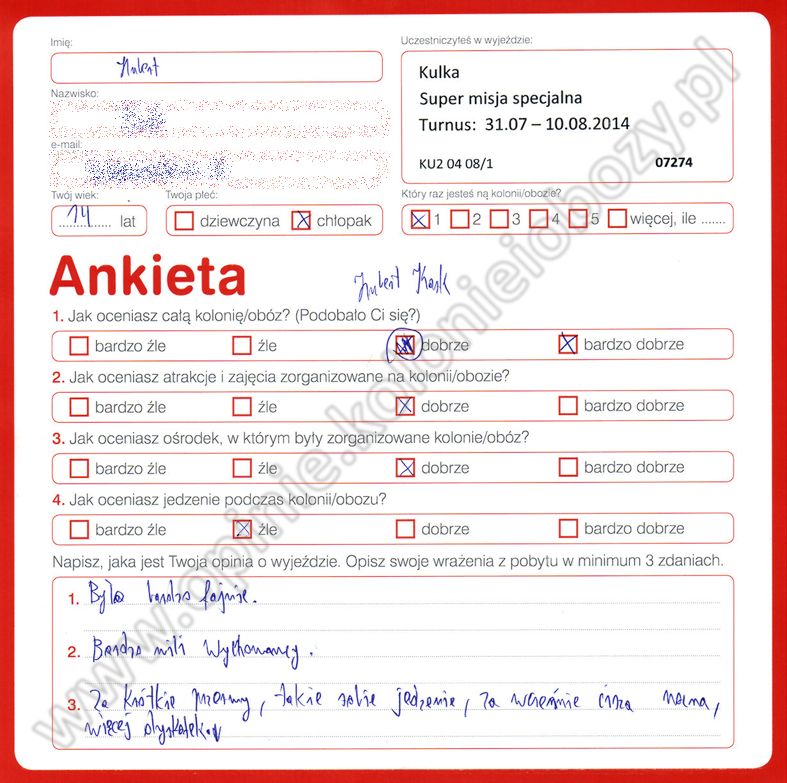 Imię:
Hubert
Uczestniczyłeś w wyjeździe:
Kulka
Super misja specjalna
Turnus: 31.07 – 10.08.2014
KU2 04 08/1 07274
Nazwisko:
e-mail:
Twój wiek:
14 lat
Twoja płeć:
dziewczyna chłopak
Który raz jesteś na kolonii/obozie?
1 2 3 4 5 więcej, ile .......
Ankieta
Hubert
1. Jak oceniasz całą kolonię/obóz? (Podobało Ci się?)
bardzo źle źle dobrze bardzo dobrze
2. Jak oceniasz atrakcje i zajęcia zorganizowane na kolonii/obozie?
bardzo źle źle dobrze bardzo dobrze
3. Jak oceniasz ośrodek, w którym były zorganizowane kolonie/obóz?
bardzo źle źle dobrze bardzo dobrze
4. Jak oceniasz jedzenie podczas kolonii/obozu?
bardzo źle źle dobrze bardzo dobrze
Napisz, jaka jest Twoja opinia o wyjeździe. Opisz swoje wrażenia z pobytu w minimum 3 zdaniach.
1. Było bardzo fajnie.
2. Bardzo mili wychowawcy.
3. Za krótkie przerwy, takie sobie jedzenie, za wcześnie cisza nocna,
więcej dyskotek
www.opinie.kolonieiobozy.pl